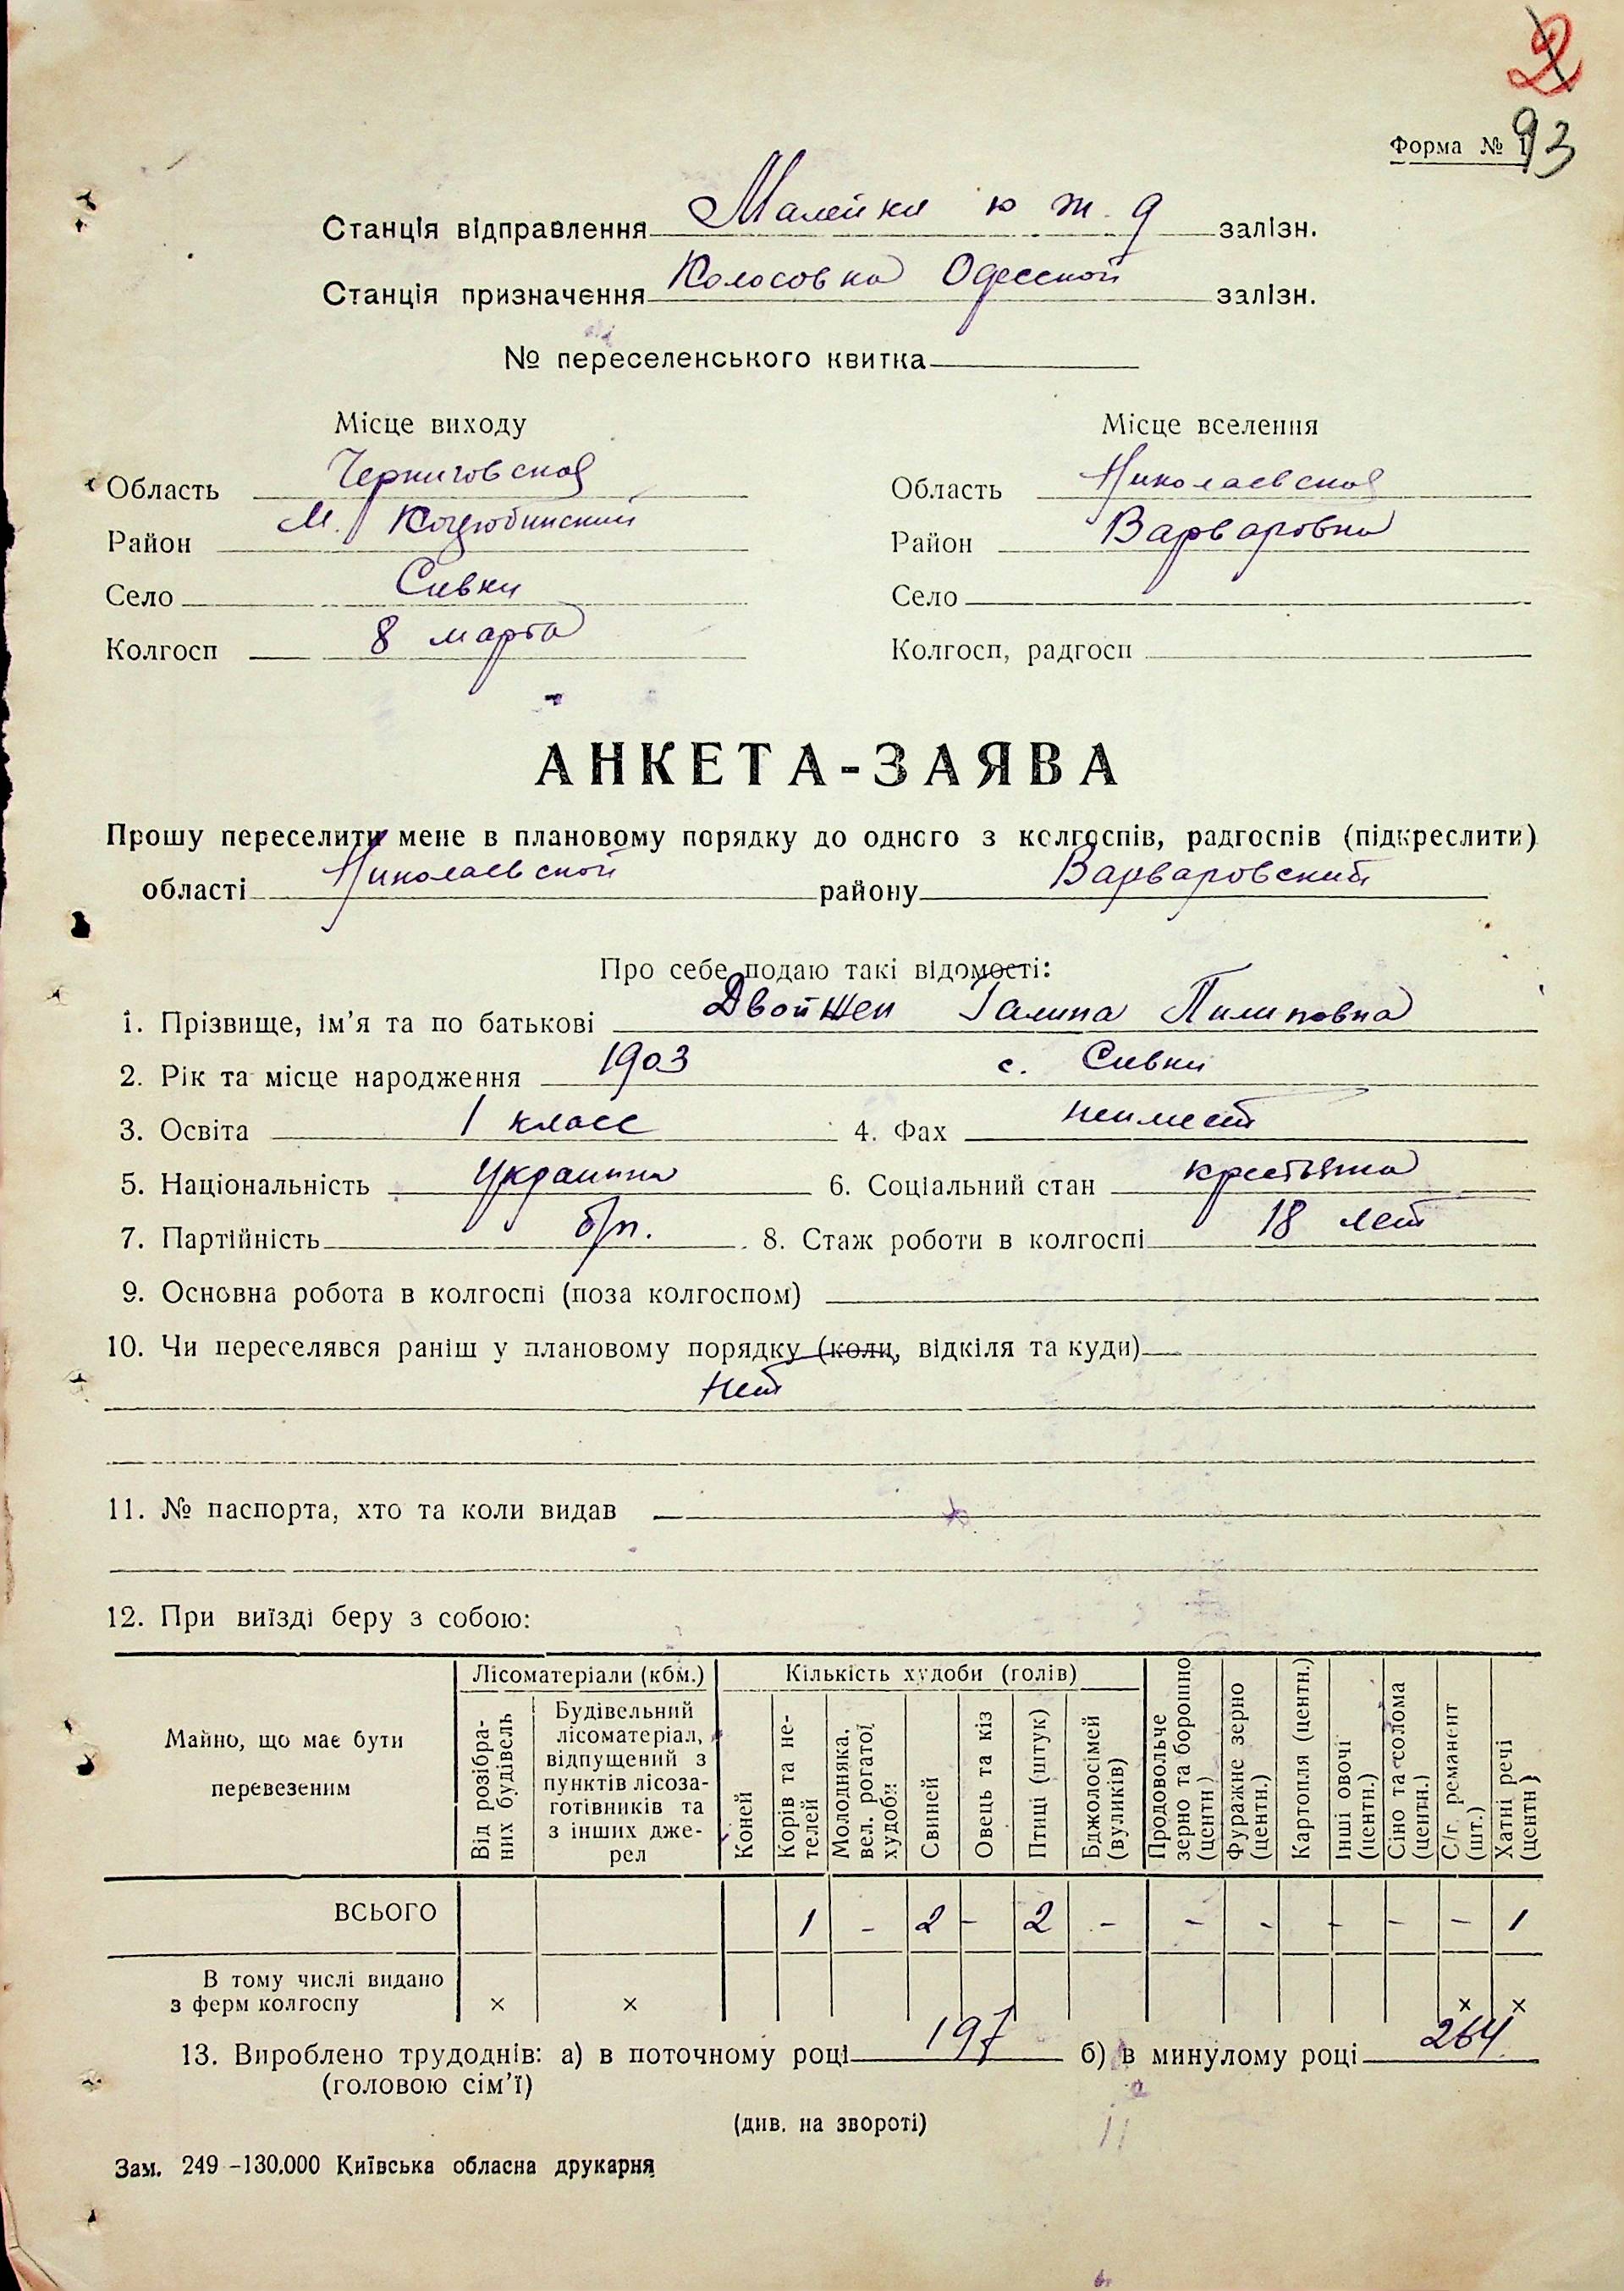 2
Форма № 1
93
Станція відправлення Малейки ю ж. д залізн.
Станція призначення Колосовка Одесской залізн.
№ переселенського квитка
Місце виходу Місце вселення
Область Черниговская Область Николаевская
Район М. Коцюбинский Район Варваровка
Село Сивки Село
Колгосп 8 марта Колгосп, радгосп
АНКЕТА-ЗАЯВА
Прошу переселити мене в плановому порядку до одного з колгоспів, радгоспів (підкреслити)
області Николаевской району Варваровский
Про себе подаю такі відомості:
1. Прізвище, ім’я та по батькові Галина Пилиповна
2. Рік та місце народження 1903 с. Сивки
3. Освіта 1 класс 4. Фах неимеет
5. Національність Украинка 6. Соціальний стан крестьянка
7. Партійність б/п. 8. Стаж роботи в колгоспі 18 лет
9. Основна робота в колгоспі (поза колгоспом)
10. Чи переселявся раніш у плановому порядку (коли, відкіля та куди)
Нет
11. № паспорта, хто та коли видав
12. При виїзді беру з собою:
Майно, що має бути перевезеним
Лісоматеріали (кбм.)
Від розібраних будівель
Будівельний лісоматеріал, відпущений з пунктів лісозаготівників та з інших джерел
Кількість худоби (голів)
Коней
Корів та нетелей
Молодняка, вел. рогатої худоби
Свиней
Овець та кіз
Птиці (штук)
Бджолосімей (вуликів)
Продовольче зерно та борошно (центн)
Фуражне зерно (центн.)
Картопля (центн.)
Інші овочі (центн.)
Сіно та солома (центн.)
С/г. реманент (шт.)
Хатні речі (центн)
ВСЬОГО 1 - 2 - 2 - - - - - - 1
В тому числі видано
з ферм колгоспу × × × ×
13. Вироблено трудоднів: а) в поточному році 197 б) в минулому році 264
(головою сім’ї)
(див. на звороті)
Зам. 249 -130.000 Київська обласна друкарня